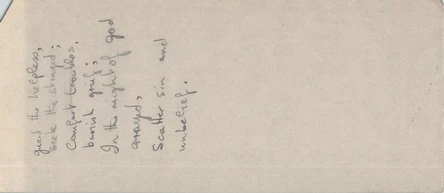 guard the helpless,
seek the strayed;
Comfort troubles,
banish grief;
In the might of god
arrayed,
Scatter sin and
unbelief.